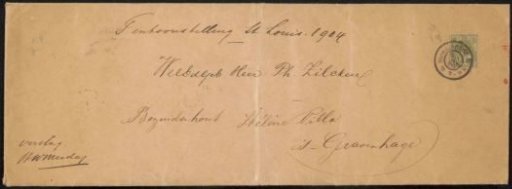 Tentoonstelling St Louis. 1904
WelEdelGeb Heer Ph. Zilcken
Bezuidenhout Hélène Villa
's-Gravenhage
verslag
HWMesdag